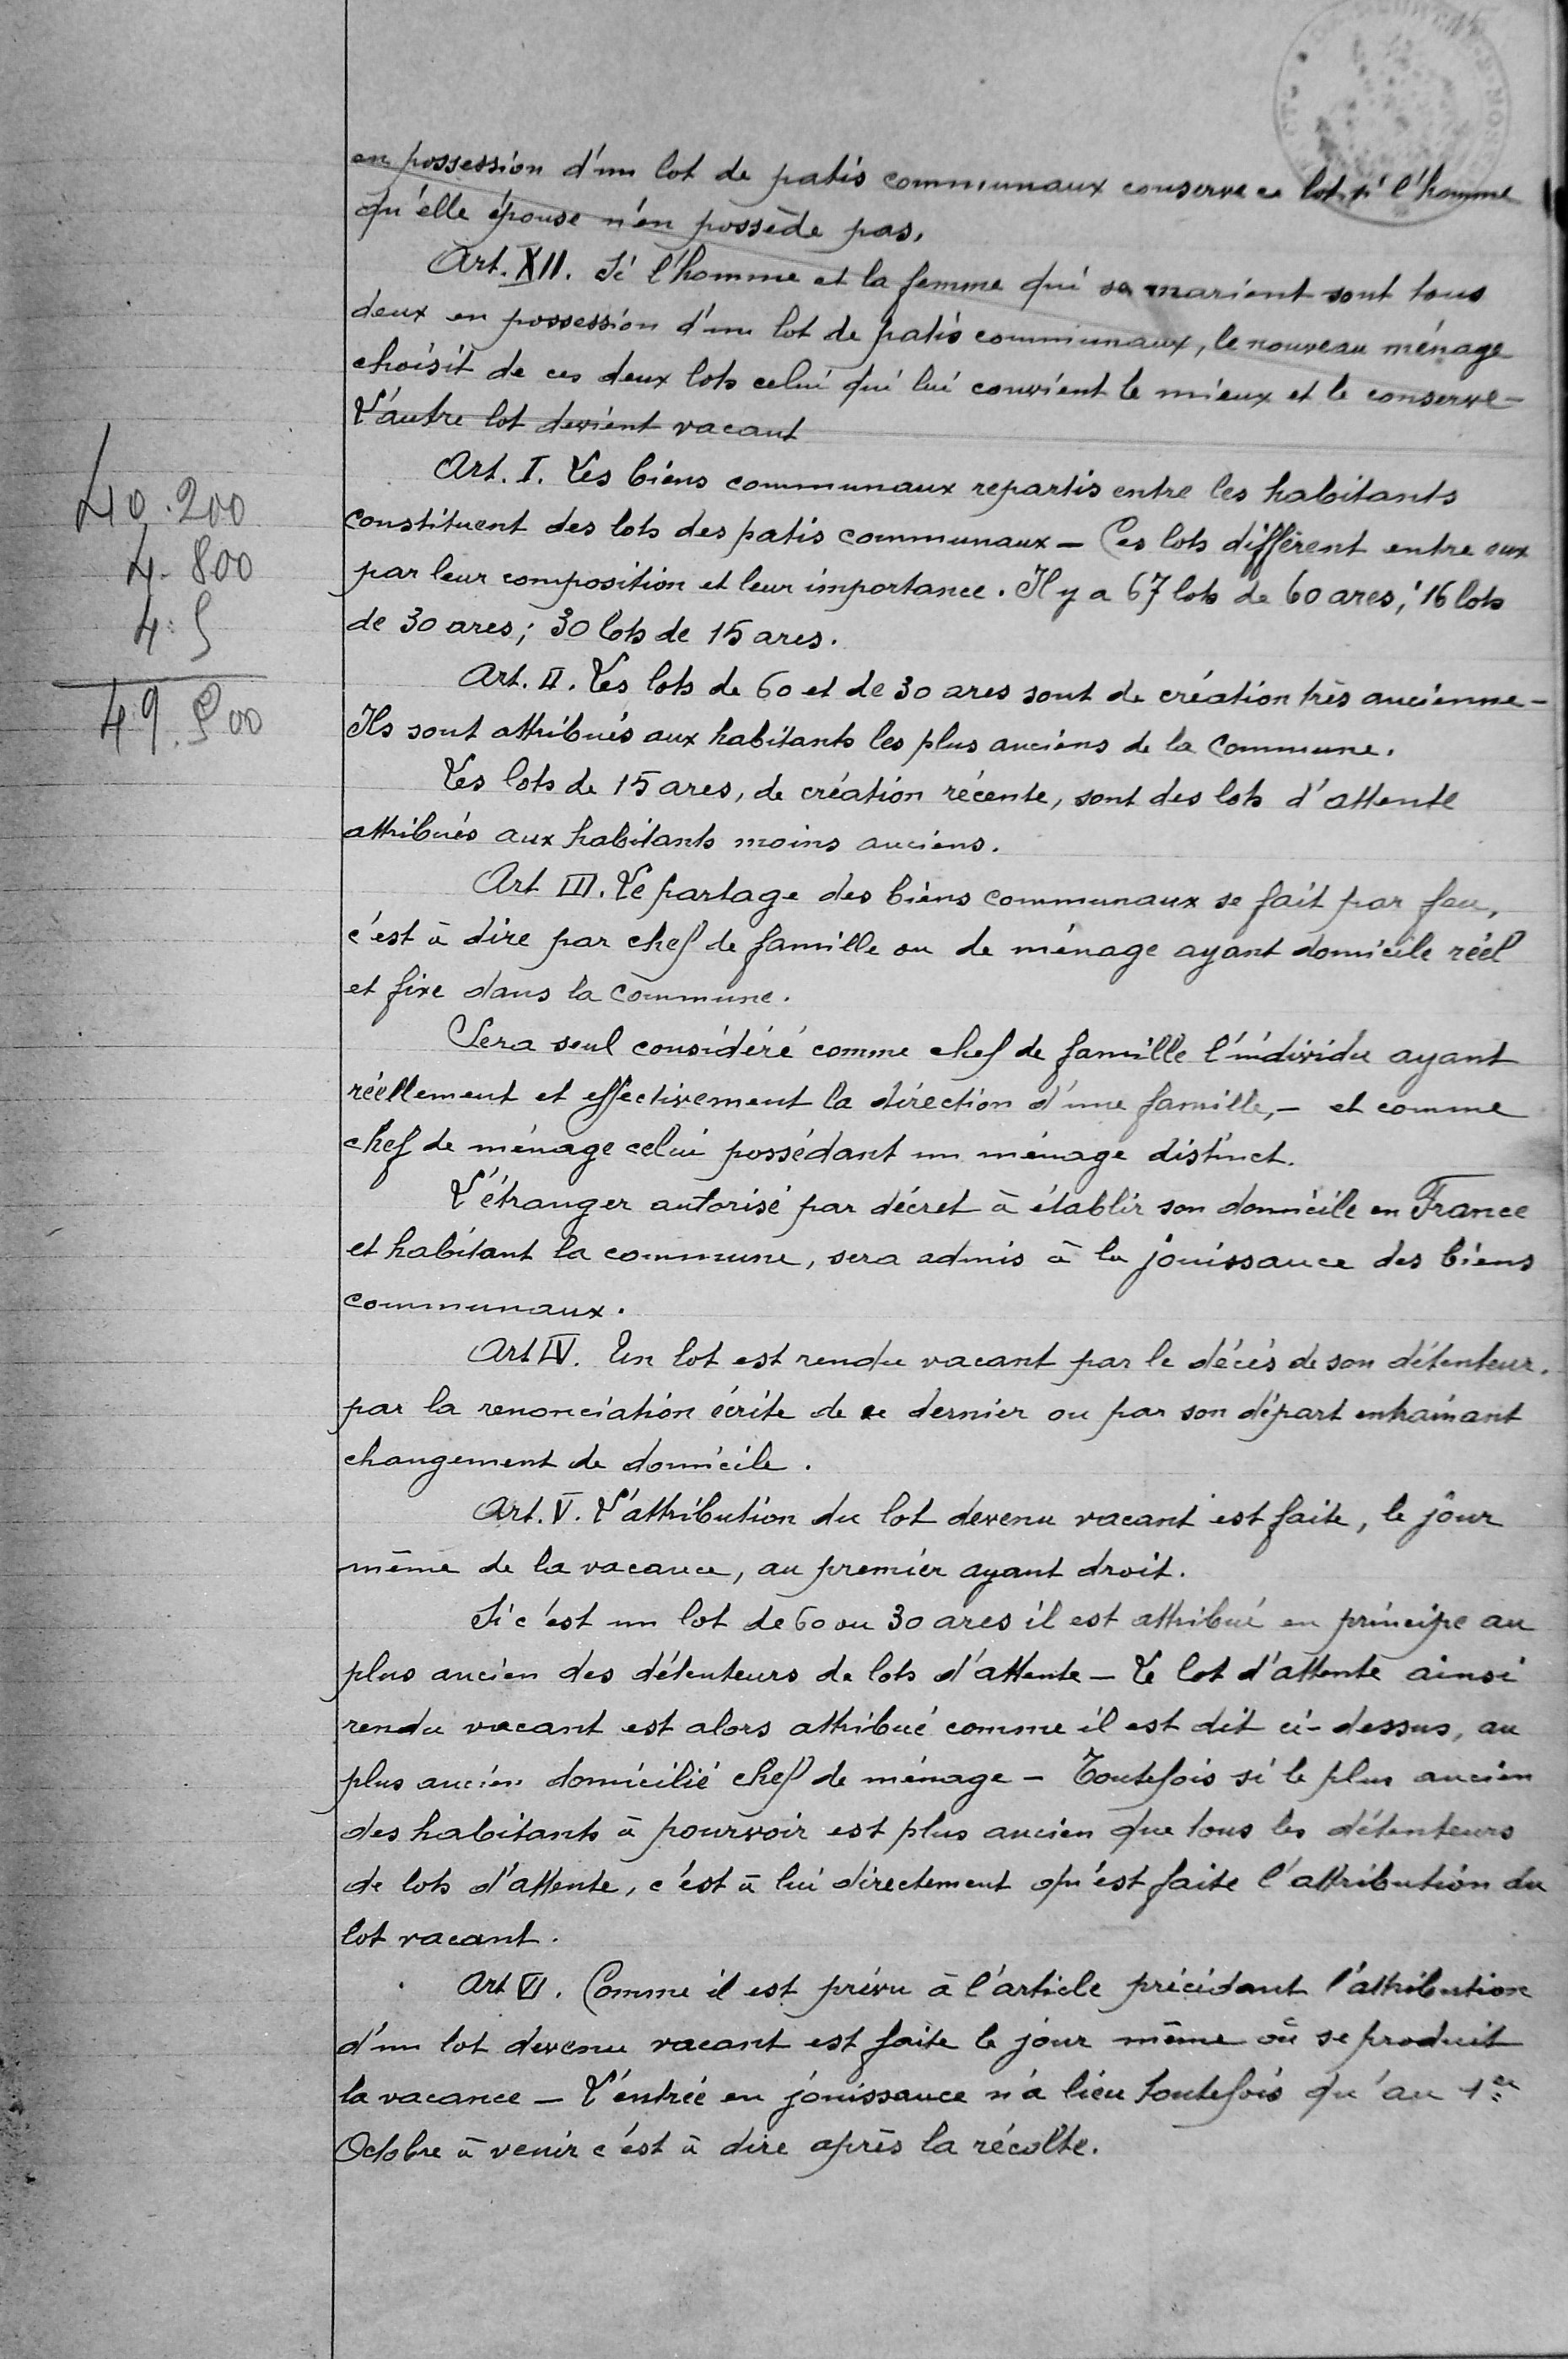 en possession d'un lot de patis communaux conserve ce lot si l'homme
qu'elle épouse n'en possède pas.
Art. XII. Si l'homme et la femme qui se marient sont tous
deux en possession d'un lot de patis communaux, le nouveau ménage
choisit de ces deux lots celui qui lui convient le mieux et le conserve -
L'autre lot devient vacant
Art. I. Les biens communaux repartis entre les habitants
constituent des lots des patis communaux - Ces lots diffèrent entre eux
par leur composition et leur importance. Il y a 67 lots de 60 ares; 16 lots
de 30 ares; 30 lots de 15 ares.
Art. II. Les lots de 60 et de 30 ares sont de création très ancienne -
Ils sont attribués aux habitants les plus anciens de la Commune.
Les lots de 15 ares, de création récente, sont des lots d'attente
attribués aux habitants moins anciens.
Art III. Le partage des biens communaux se fait par feu,
c'est à dire par chef de famille ou de ménage ayant domicile réel
et fixe dans la Commune.
Sera seul considéré comme chef de famille l'individu ayant
réellement et effectivement la direction d'une famille, - et comme
chef de ménage celui possédant un ménage distinct.
L'étranger autorisé par décret à établir son domicile en France
et habitant la commune, sera admis à la jouissance des biens
communaux.
Art IV. Un lot est rendu vacant par le décès de son détenteur.
par la renonciation écrite de ce dernier ou par son départ entraînant
changement de domicile.
Art. V. L'attribution du lot devenu vacant est faite, le jour
même de la vacance, au premier ayant droit.
Si c'est un lot de 60 ou 30 ares il est attribué en principe au
plus ancien des détenteurs de lots d'attente - Le lot d'attente ainsi
rendu vacant est alors attribué comme il est dit ci-dessus, au
plus ancien domicilié chef de ménage - Toutefois si le plus ancien
des habitants à pourvoir est plus ancien que tous les détenteurs
de lots d'attente, c'est à lui directement qu'est faite l'attribution du
lot vacant.
Art VI. Comme il est prévu à l'article précédant l'attribution
d'un lot devenu vacant est faite le jour même où se produit
la vacance - L'entrée en jouissance n'a lieu toutefois qu'au 1er
Octobre à venir c'est à dire après la récolte.
40.200
4.800
4.5
49.500